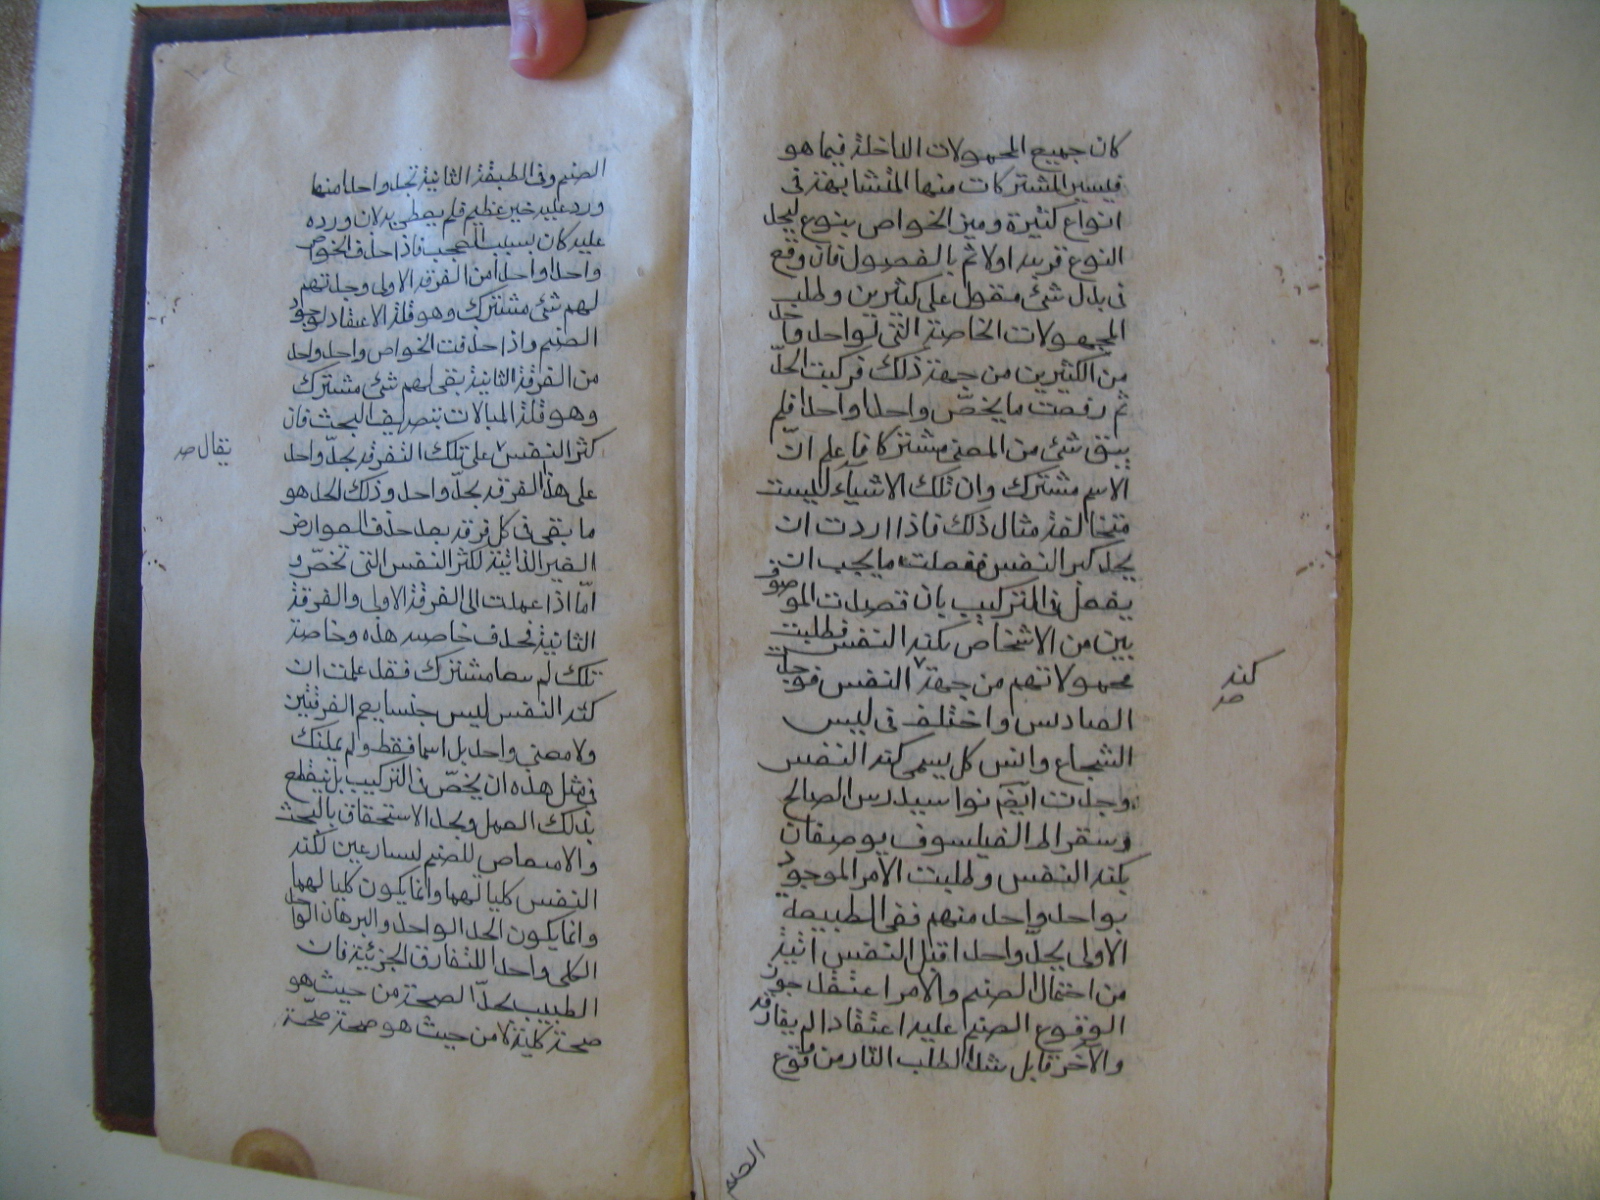 كان جميع المحمولات الداخلة فيما هو
فيسير المشتركات منها المتشابهة فى
انواع كثيرة وميز الخواص بنوع ليحل
النوع قريبه اولا ثم بالفصول فان وقع
فى بدل شئ مقول على كثيرين وطلب
المحمولات الخاصة التى لواحد واحد
من الكثيرين من جهة ذلك فركبت الحدّ
ثم رفعت ما يخصّ واحدا واحدا فلم
يبق شئ من المعنى مشتركا فاعلم انّ
الاسم مشترك وان تلك الاشياء ليست
متخالفة مثال ذلك فاذا اردت ان
يحد كبر النفس ففعلت ما يجب ان
يفعل فى التركيب بان تصيدت الموصوف
بين من الاشخاص بكند النفس فطلبت
محمولاتهم من جهة النفس فوجدت
واختلف فى ليس
الشجاع وانس كل يسمى كند النفس
وجدت ايضا الصالح
وسقراط الفيلسوف يوصفان
بكند النفس وطلبت الامر الموجود
بواحد واحد منهم ففى الطبيعة
الاولى يجد واحدا قبل النفس
من احتمال الضيم والامر اعتقد جور
الوقوع الضيم عليه اعتقادا لم يفارقه
والآخر قابل الطلب الثار من وقوع
الضيم
كند
صح
الضيم وفى الطبقة الثانية تجد واحدا منها
ورد عليه خير عظيم فلم يعطى بدلان ورده
عليه كان بسبب العجب فاذا حذف الخواص
واحدا واحدا من الفرقة الاولى وجدتهم
لهم شئ مشترك وهو قلة الاعتقاد لوجود
الضيم واذا حذفت الخواص واحد واحد
من الفرقة الثانية بقى لهم شئ مشترك
وهو قلة المبالات بتصاريف البحث فان
كثر النفس على تلك الفرقة بحدّ واحد
على هذا الفرقة بحدّ واحد وذلك الحد هو
ما بقى فى كل فرقة بعد حذف العوارض
الغير الذاتية لكثر النفس التى تخصّ و
امّا اذا عملت الى الفرقة الاولى والفرقة
الثانية فحذف خاصة هذه وخاصة
تلك لم مشترك فقد علمت ان
كند النفس ليس جنسا يعم الفرقتين
ولا معنى واحد بل اسما فقط ولم يمكنك
فى مثل هذه ان يخصّ فى التركيب بل يقطع
بذلك العمل وتجد الاستحقاق بالبحث
للضيم لكند
النفس كليا لهما وانما يكون كليا لهما
وانما يكون الحد الواحد والبرهان الواحد
الكلى واحدا للتفارق الجزئية فان
الطبيب يحدّ الصحة من حيث هو
صحة كلية لا من حيث هو صحة صحة
يقال صح